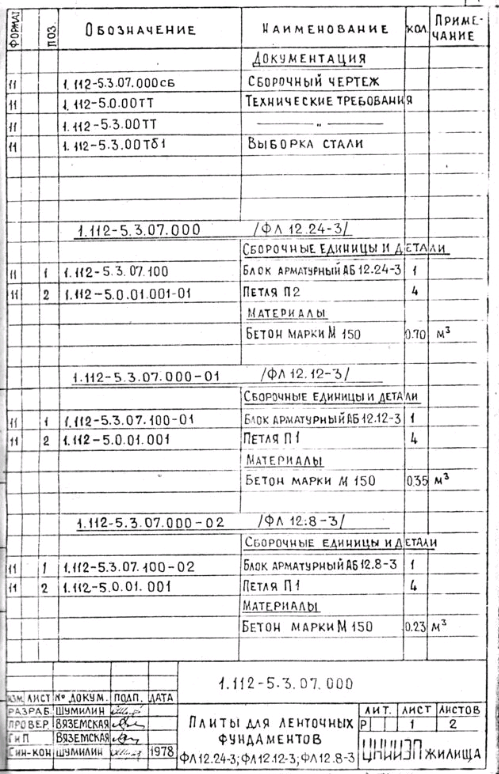 ФОРМАТ ПОЗ. ОБОЗНАЧЕНИЕ НАИМЕНОВАНИЕ КОЛ. ПРИМЕ-
ЧАНИЕ
ДОКУМЕНТАЦИЯ
11 1.112-5.3.07.000СБ СБОРОЧНЫЙ ЧЕРТЕЖ
11 1.112-5.0.00ТТ ТЕХНИЧЕСКИЕ ТРЕБОВАНИЯ
11 1.112-5.3.00ТТ — „ —
11 1.112-5.3.00ТБ1 ВЫБОРКА СТАЛИ
1.112-5.3.07.000 /ФЛ 12.24-3/
СБОРОЧНЫЕ ЕДИНИЦЫ И ДЕТАЛИ
11 1 1.112-5.3.07.100 БЛОК АРМАТУРНЫЙ АБ 12.24-3 1
11 2 1.112-5.0.01.001-01 ПЕТЛЯ П2 4
МАТЕРИАЛЫ
БЕТОН МАРКИ М 150 0.70 м³
1.112-5.3.07.000-01 /ФЛ 12.12-3/
СБОРОЧНЫЕ ЕДИНИЦЫ И ДЕТАЛИ
11 1 1.112-5.3.07.100-01 БЛОК АРМАТУРНЫЙ АБ 12.12-3 1
11 2 1.112-5.0.01.001 ПЕТЛЯ П1 4
МАТЕРИАЛЫ
БЕТОН МАРКИ М 150 0.35 м³
1.112-5.3.07.000-02 /ФЛ 12.8-3/
СБОРОЧНЫЕ ЕДИНИЦЫ И ДЕТАЛИ
11 1 1.112-5.3.07.100-02 БЛОК АРМАТУРНЫЙ АБ 12.8-3 1
11 2 1.112-5.0.01.001 ПЕТЛЯ П1 4
МАТЕРИАЛЫ
БЕТОН МАРКИ М 150 0.23 м³
1.112-5.3.07.000
ИЗМ. ЛИСТ № ДОКУМ. ПОДП. ДАТА
РАЗРАБ. ШУМИЛИН
ПРОВЕР ВЯЗЕМСКАЯ
ГИП ВЯЗЕМСКАЯ
СИН-КОН ШУМИЛИН 1978
ПЛИТЫ ДЛЯ ЛЕНТОЧНЫХ
ФУНДАМЕНТОВ
ФЛ12.24-3; ФЛ12.12-3; ФЛ12.8-3
ЛИТ. ЛИСТ ЛИСТОВ
Р 1 2
ЦНИИЭП ЖИЛИЩА